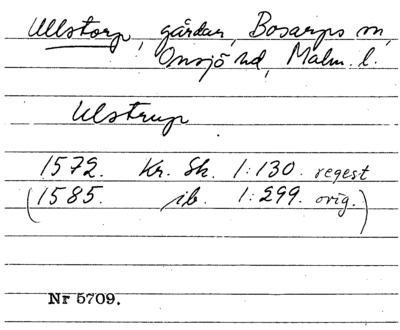 Ullstorp, gårdar, Bosarps sn,
Onsjö hd, Malm. l.
Ulstrup
1572. Kr. Sk. 1:130. regest
(1585. ib. 1:299. orig.)
Nr 5709.